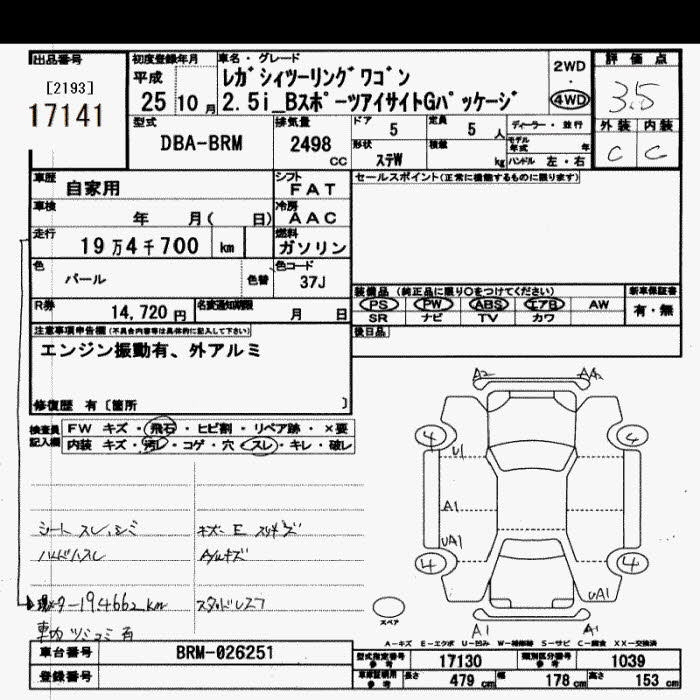 出品番号
[2193]
17141
初度登録年月
平成
25 10 月
車名・グレード
レガシィツーリングワゴン
2.5i_BスポーツアイサイトGパッケージ
2WD
・
4WD
評価点
3.5
外装 内装
C C
型式
DBA-BRM
排気量
2498 CC
ドア 5
定員 5 人
ディーラー・並行
形状 ステW
積載 kg
モデル年式 年
ハンドル 左・右
車歴 自家用
シフト FAT
セールスポイント(正常に機能するものに限ります)
車検 年 月( 日)
冷房 AAC
走行 19万4千700 km
燃料 ガソリン
色 パール
色替
色コード 37J
装備品 (純正品に限り○をつけてください)
新車保証書
PS PW ABS エアB AW
有・無
SR ナビ TV カワ
R券 14,720 円
名変通知期限 月 日
後日品
注意事項申告欄(不具合内容等は具体的に記入して下さい)
エンジン振動有、外アルミ
修復歴 有 〔箇所 〕
検査員記入欄
FW キズ・飛石・ヒビ割・リペア跡・×要
内装 キズ・汚レ・コゲ・穴・スレ・キレ・破レ
シート スレ、シミ
キズ E スリキズ
ハンドルスレ
A/Wキズ
メーター194662km
スタッドレス
A2 AA
4 4
U1
A1
UA1
4 4
UA1
A1 A1
スペア
A-キズ E-エクボ U-凹み W-補修跡 S-サビ C-腐食 XX-交換済
車台番号 BRM-026251
登録番号
型式指定番号 参考 17130
類別区分番号 参考 1039
車庫証明用 参考 長さ 479 cm 幅 178 cm 高さ 153 cm